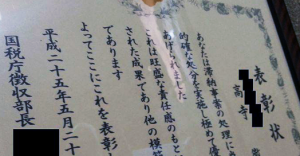 表彰状
高寺
あなたは滞納事案の処理に
的確な処分を実施し極めて優
あげられました
これは旺盛な責任感のもと
された成果であり他の模範
であります
よってここにこれを表彰し
平成二十五年五月二十
国税庁徴収部長